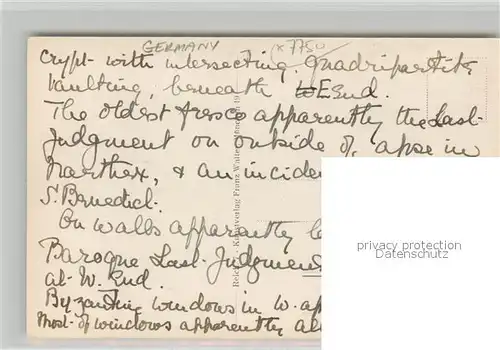 GERMANY x 7750
Crypt with intersecting. Quadripartite
Vaulting, beneath W E End.
The oldest fresco apparently the Last
Judgment on outside of apse in
Narthex, & an inciden
S. Benedict.
On walls apparently
Baroque Last Judgment
at W. End.
Byzantine windows in W. ap
Most of windows apparently al
Kunstverlag Franz Walter
privacy protection
Datenschutz